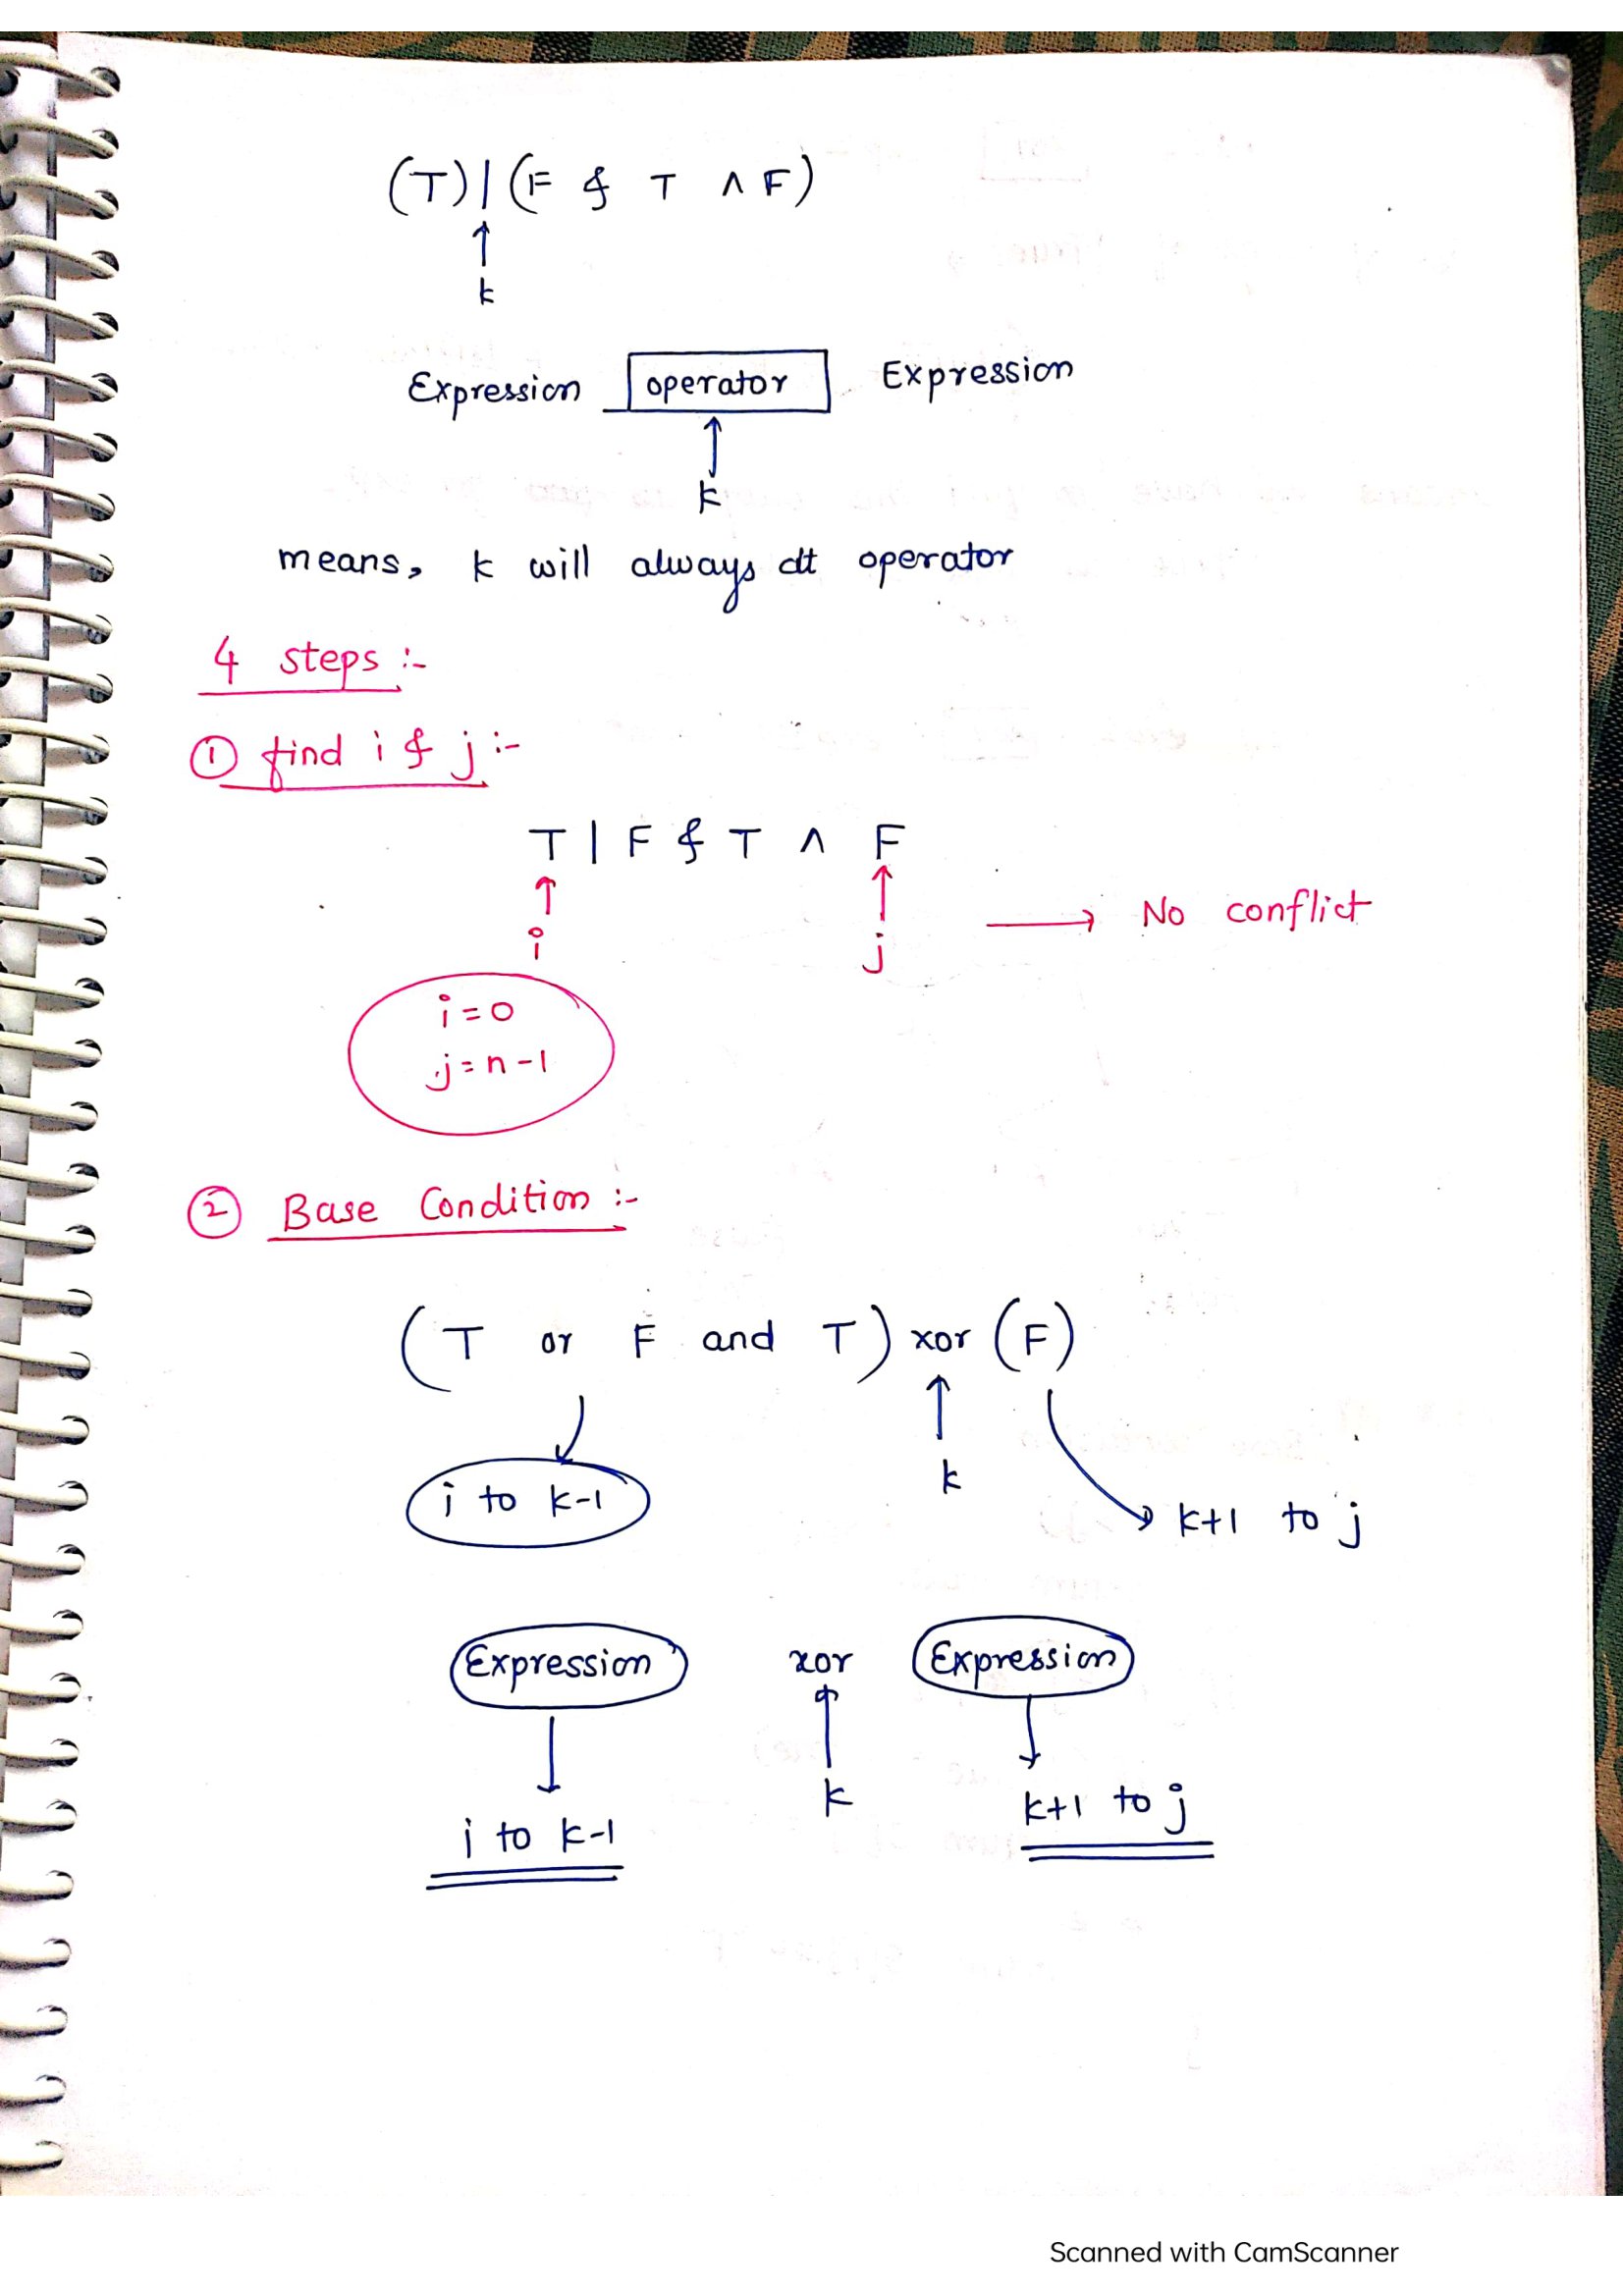 (T) | (F & T ∧ F)
↑
k
Expression operator Expression
↑
k
means, k will always at operator
4 steps :-
① find i & j :-
T | F & T ∧ F
↑ ↑ → No conflict
i j
i = 0
j = n-1
② Base Condition :-
(T or F and T) xor (F)
↑
k
i to k-1
k+1 to j
Expression xor Expression
↑
k
i to k-1 k+1 to j
Scanned with CamScanner